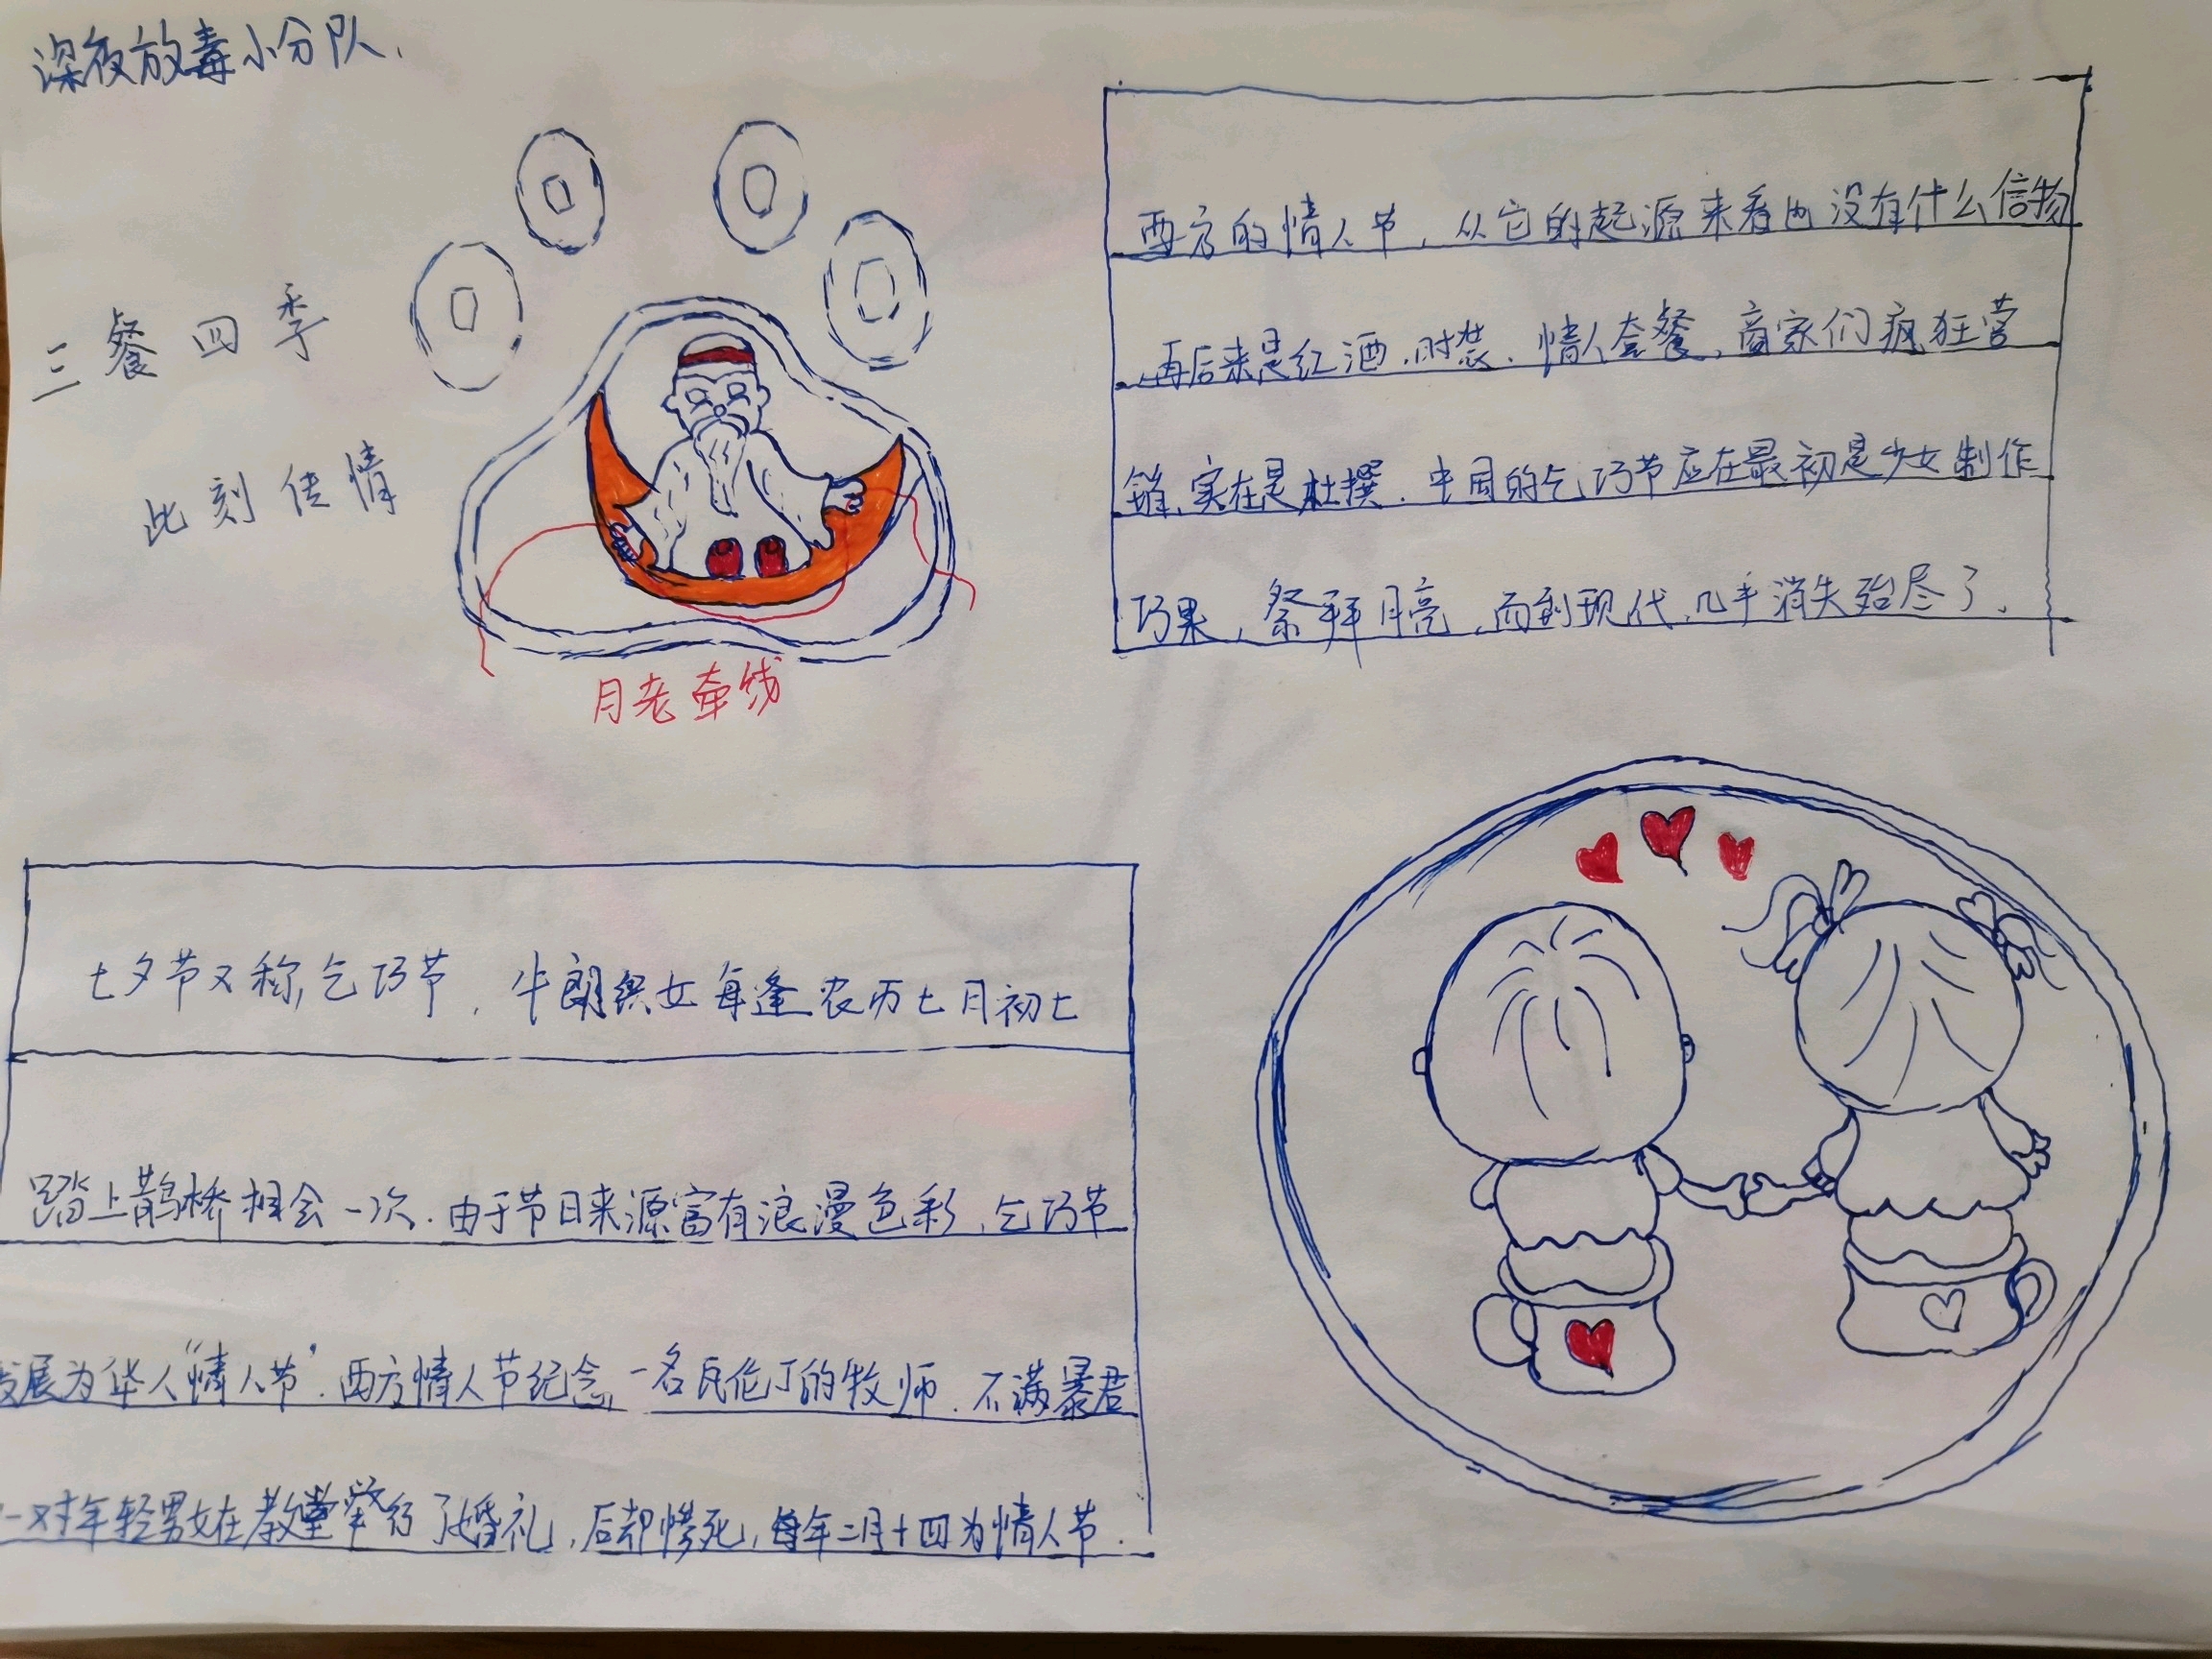 深夜放毒小分队.
三餐四季
此刻传情
月老牵线
西方的情人节，从它的起源来看也没有什么信物
,再后来是红酒.时装.情人套餐,商家们疯狂营
销,实在是杜撰.中国的乞巧节应在最初是少女制作
巧果,祭拜月亮,而到现代,几乎消失殆尽了.
七夕节又称,乞巧节,牛朗织女每逢农历七月初七
踏上鹊桥相会一次.由于节日来源富有浪漫色彩,乞巧节
发展为华人“情人节”.西方情人节纪念,一名瓦伦丁的牧师.不满暴君
一对年轻男女在教堂举行了婚礼,后却惨死,每年二月十四为情人节.